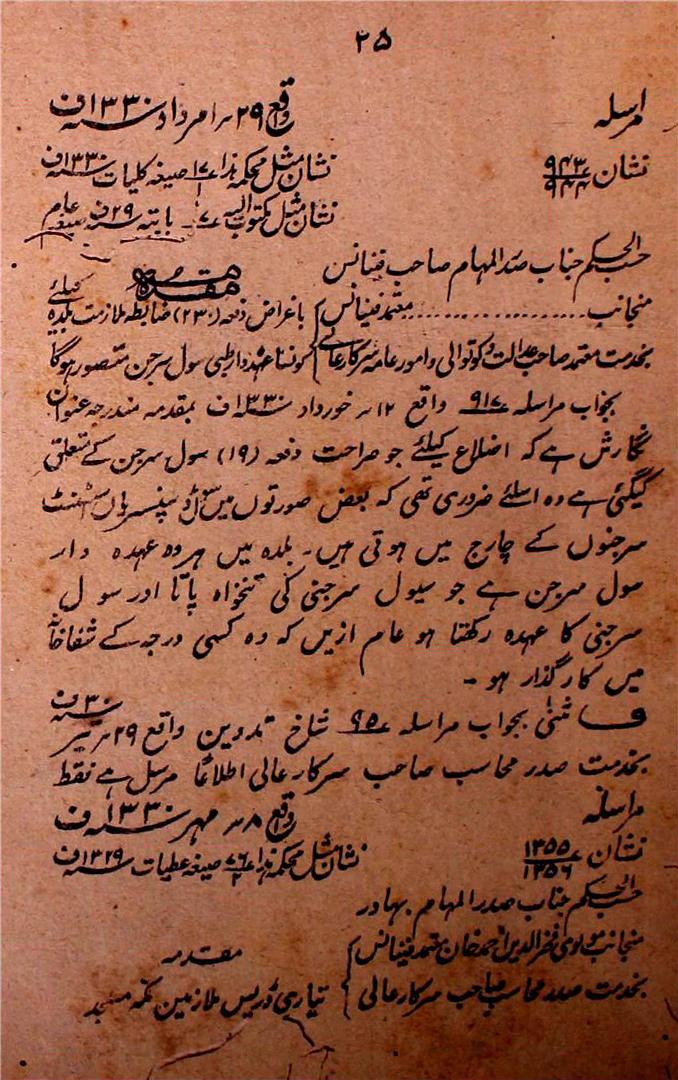 ۲۵
مراسلہ واقع ۲۹ امرداد ۱۳۳۰ف
نشان ۹۴۳/۹۴۴ نشان مثل محکمہ ہذا ۱۷/۱ صیغہ کلیات ۱۳۳۰ف
نشان مثل مکتوب الیہ ۷ بابتہ ۲۹ف صیغہ عام
حسب الحکم جناب صدر المہام صاحب فینانس
مقدمہ
منجانب معتمد فینانس باغراض دفعہ (۲۳۰) ضابطہ ملازمت بلدہ کیلئے
بخدمت معتمد صاحب عدالت و کوتوالی و امور عامہ سرکار عالی کونسا عہدہ دار طبی سول سرجن متصور ہوگا
بجواب مراسلہ ۹۱۷ واقع ۱۲ خورداد ۱۳۳۰ف بمقدمہ مندرجہ عنوان
نگارش ہے کہ اضلاع کیلئے جو صراحت دفعہ (۱۹) سول سرجن کے متعلق
کیگئی ہے وہ اسلئے ضروری تھی کہ بعض صورتوں میں ڈسپنسریاں اسسٹنٹ
سرجنوں کے چارج میں ہوتی ہیں۔ بلدہ میں ہر وہ عہدہ دار
سول سرجن ہے جو سیول سرجنی کی تنخواہ پاتا اور سول
سرجنی کا عہدہ رکھتا ہو عام ازیں کہ وہ کسی درجہ کے شفاخانہ
میں کارگذار ہو۔
مثنیٰ بجواب مراسلہ ۹۵ شاخ تدوین واقع ۲۹ تیر ۳۰ف
بخدمت صدر محاسب صاحب سرکار عالی اطلاعاً مرسل ہے فقط
مراسلہ واقع ۸ مہر ۱۳۳۰ف
نشان ۱۳۵۵/۱۳۵۶ نشان مثل محکمہ ہذا ۷۶/۲ صیغہ عطیات ۱۳۲۹ف
حسب الحکم جناب صدر المہام بہادر
منجانب مولوی فخر الدین احمد خان معتمد فینانس مقدمہ
بخدمت صدر محاسب صاحب سرکار عالی تیاری ڈریس ملازمین مکہ مسجد